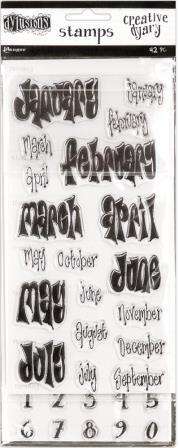 DYLUSIONS
stamps
creative
dyary
Ranger
#2 9C
January
January
February
March
February
April
March
April
May
October
June
May
June
November
August
December
July
July
September
1 2 3 4 5
6 7 8 9 0